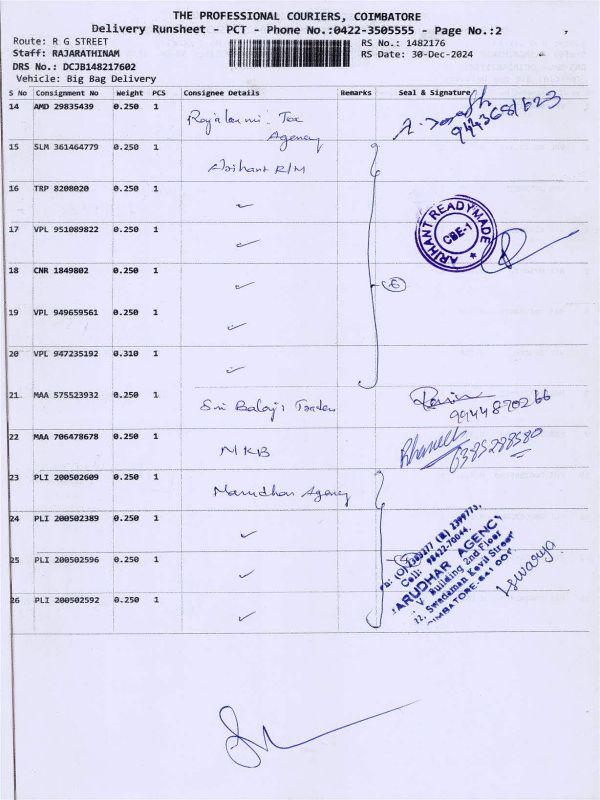 THE PROFESSIONAL COURIERS, COIMBATORE
Delivery Runsheet - PCT - Phone No.:0422-3505555 - Page No.:2
Route: R G STREET RS No.: 1482176
Staff: RAJARATHINAM RS Date: 30-Dec-2024
DRS No.: DCJB148217602
Vehicle: Big Bag Delivery
S No Consignment No Weight PCS Consignee Details Remarks Seal & Signature
14 AMD 29835439 0.250 1 Rajalaxmi Tex Agency
15 SLM 361464779 0.250 1 Arihant R/M
16 TRP 8208020 0.250 1 ✓
17 VPL 951089822 0.250 1 ✓
ARIHANT READYMADE
CBE-1
18 CNR 1849802 0.250 1 ✓ 6
19 VPL 949659561 0.250 1 ✓
20 VPL 947235192 0.310 1 ✓
21 MAA 575523932 0.250 1 Sri Balaji Traders 9944870266
22 MAA 706478678 0.250 1 MKB
23 PLI 200502609 0.250 1 Marudhar Agency
24 PLI 200502389 0.250 1 ✓
25 PLI 200502596 0.250 1 ✓
26 PLI 200502592 0.250 1 ✓
2399773,
Cell: 98422-70044,
ARUDHAR AGENCY
Building 2nd Floor
Street
Iswarya